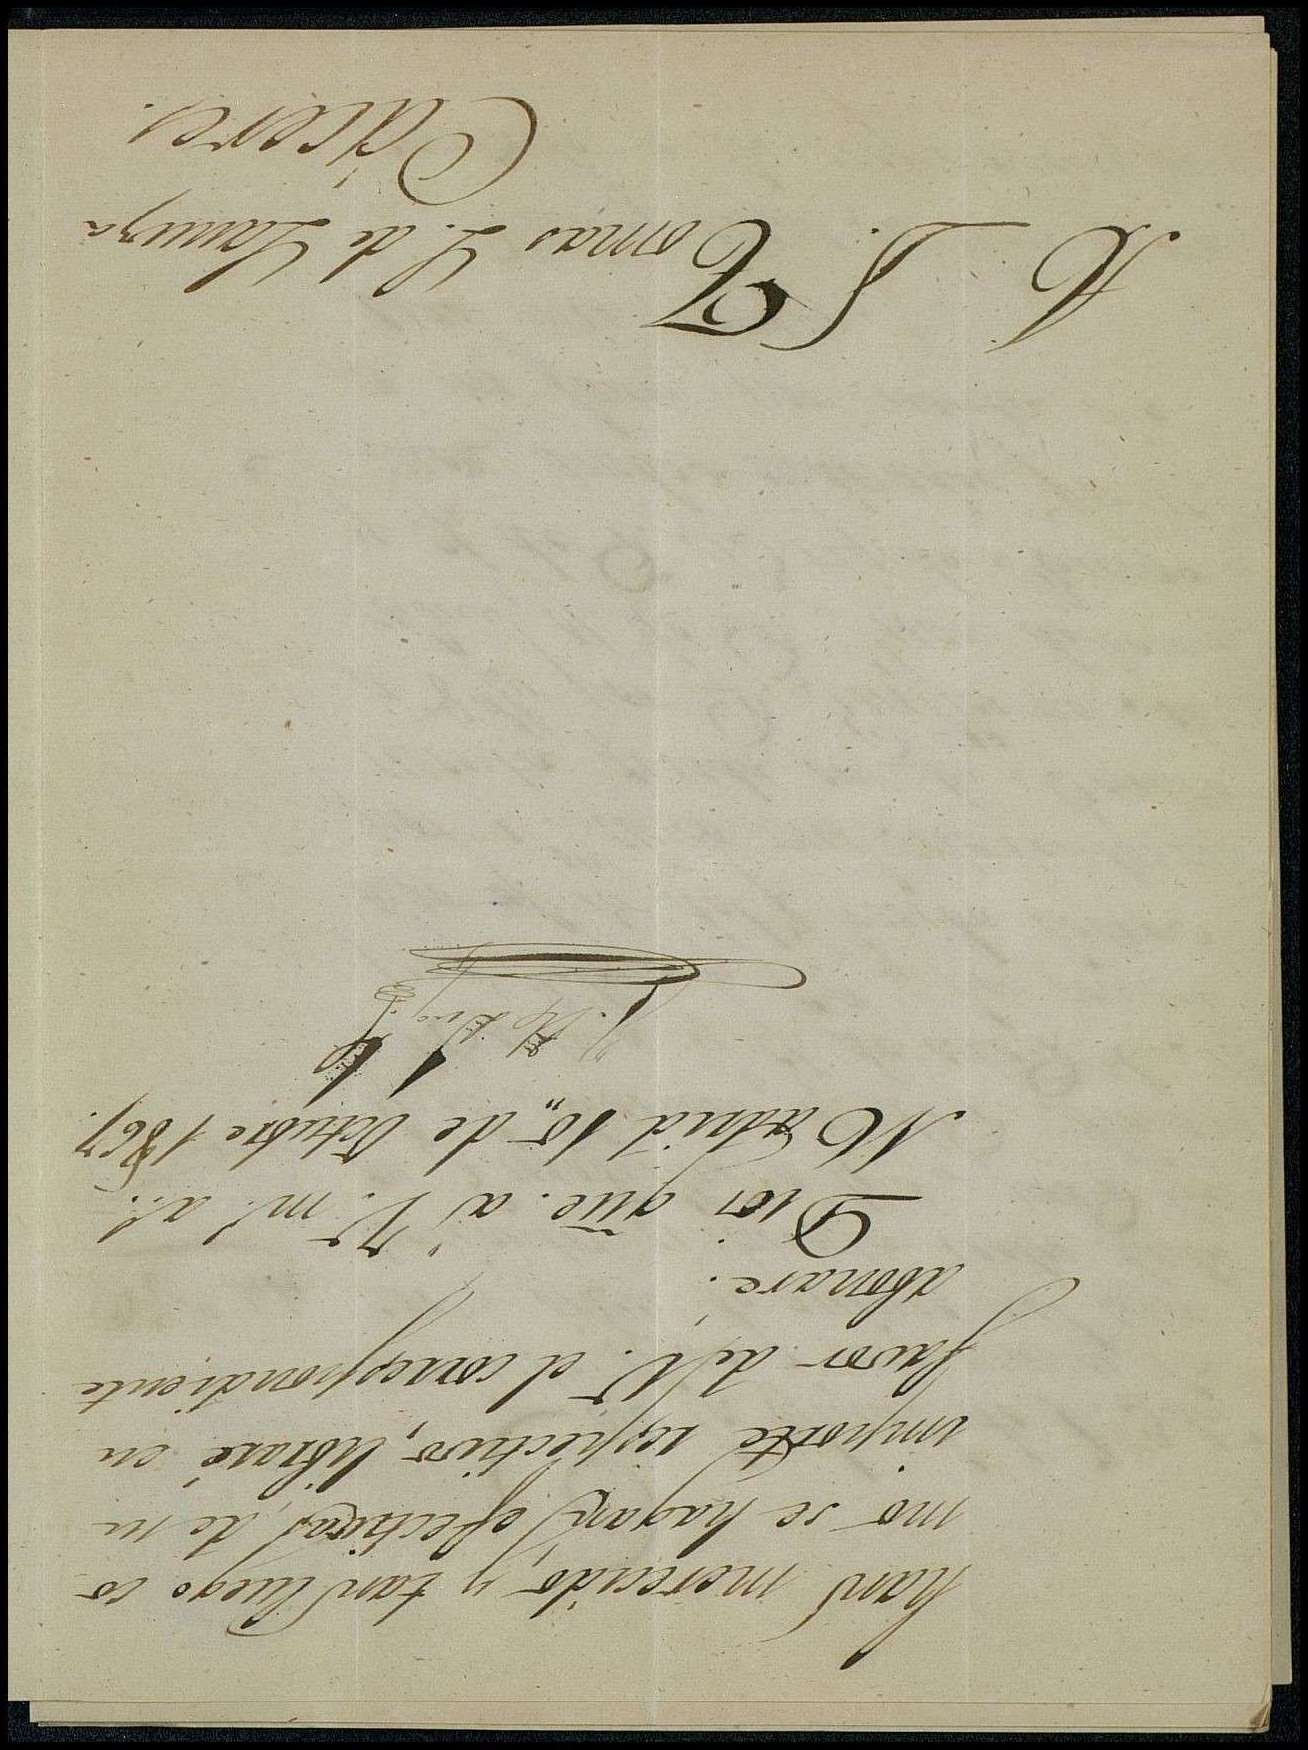 han merecido, y tan luego co
mo se hagan efectivas, de su
importe respectivo, libraré en
favor de V. el correspondiente
abonaré.
Dios gūe. á V. m.s a.s
Madrid 10,, de Octubre 1867.
A D. Tomas L. de Lanuza
Cáceres.